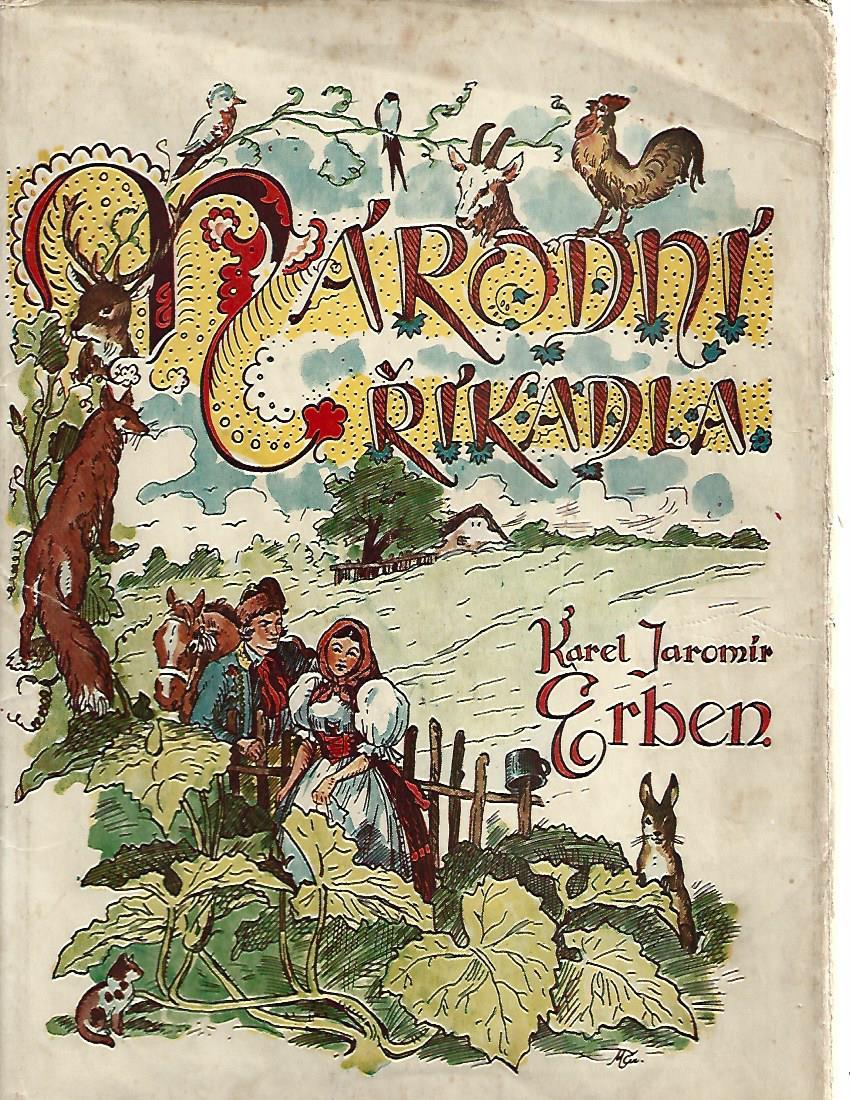 NÁRODNÍ
ŘÍKADLA.
Karel Jaromír
Erben